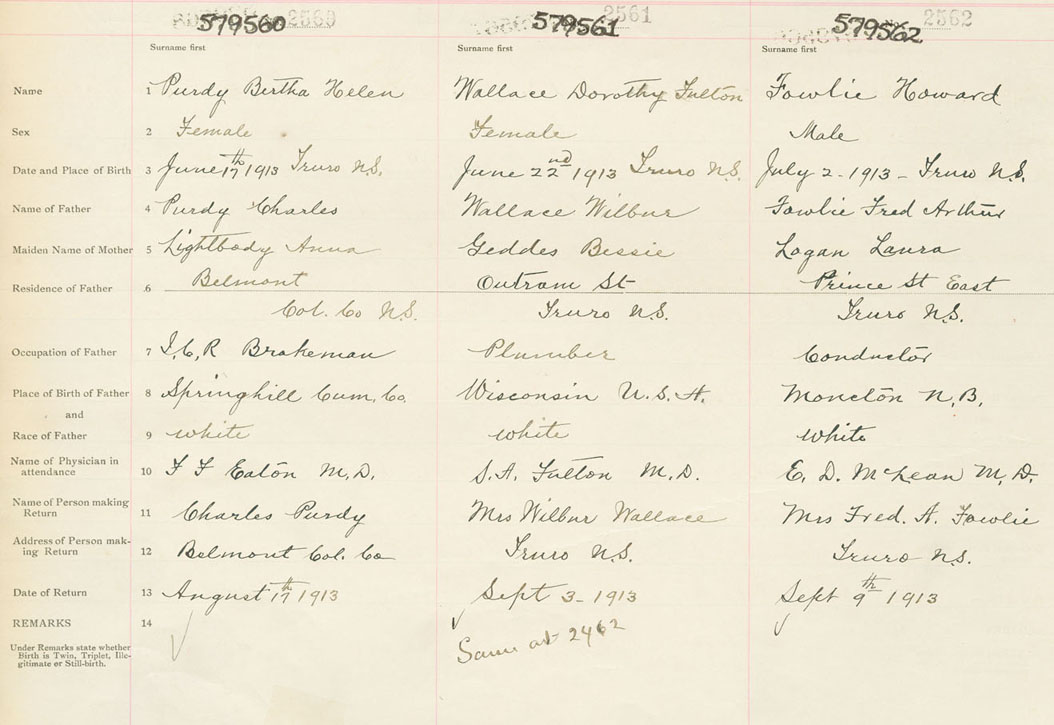 579560 2560 579561 2561 579562 No. 2562
Surname first Surname first Surname first
Name 1 Purdy Bertha Helen Wallace Dorothy Fulton Fowlie Howard
Sex 2 Female Female Male
Date and Place of Birth 3 June 17th 1913 Truro N.S. June 22nd 1913 Truro N.S. July 2 - 1913 - Truro N.S.
Name of Father 4 Purdy Charles Wallace Wilbur Fowlie Fred Arthur
Maiden Name of Mother 5 Lightbody Anna Geddes Bessie Logan Laura
Residence of Father 6 Belmont Outram St Prince St East
Col. Co N.S. Truro N.S. Truro N.S.
Occupation of Father 7 I.C.R Brakeman Plumber Conductor
Place of Birth of Father 8 Springhill Cum. Co. Wisconsin U.S.A. Moncton N.B.
and
Race of Father 9 white white white
Name of Physician in
attendance 10 F F Eaton M.D. S.A. Fulton M.D. E. D. McLean M.D.
Name of Person making
Return 11 Charles Purdy Mrs Wilbur Wallace Mrs Fred. A. Fowlie
Address of Person mak-
ing Return 12 Belmont Col. Co Truro N.S. Truro N.S.
Date of Return 13 August 17th 1913 Sept 3 - 1913 Sept 9th 1913
REMARKS 14
Same as 2462
Under Remarks state whether
Birth is Twin, Triplet, Ille-
gitimate or Still-birth.